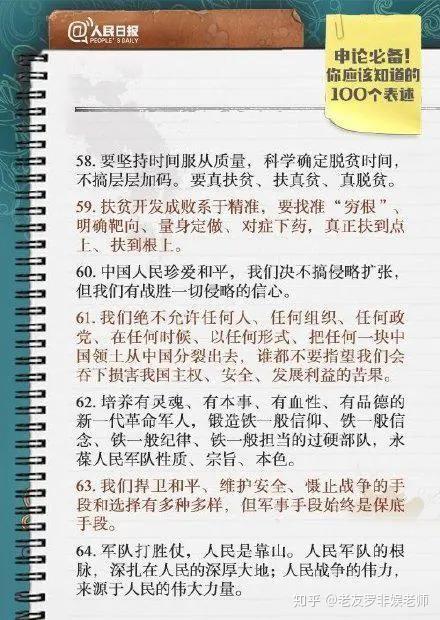 @人民日报
PEOPLE'S DAILY
申论必备！
你应该知道的
100个表述
58. 要坚持时间服从质量，科学确定脱贫时间，
不搞层层加码。要真扶贫、扶真贫、真脱贫。
59. 扶贫开发成败系于精准，要找准“穷根”、
明确靶向、量身定做、对症下药，真正扶到点
上、扶到根上。
60. 中国人民珍爱和平，我们决不搞侵略扩张，
但我们有战胜一切侵略的信心。
61. 我们绝不允许任何人、任何组织、任何政
党、在任何时候、以任何形式、把任何一块中
国领土从中国分裂出去，谁都不要指望我们会
吞下损害我国主权、安全、发展利益的苦果。
62. 培养有灵魂、有本事、有血性、有品德的
新一代革命军人，锻造铁一般信仰、铁一般信
念、铁一般纪律、铁一般担当的过硬部队，永
葆人民军队性质、宗旨、本色。
63. 我们捍卫和平、维护安全、慑止战争的手
段和选择有多种多样，但军事手段始终是保底
手段。
64. 军队打胜仗，人民是靠山。人民军队的根
脉，深扎在人民的深厚大地；人民战争的伟力，
来源于人民的伟大力量。
知乎 @老友罗非娱老师